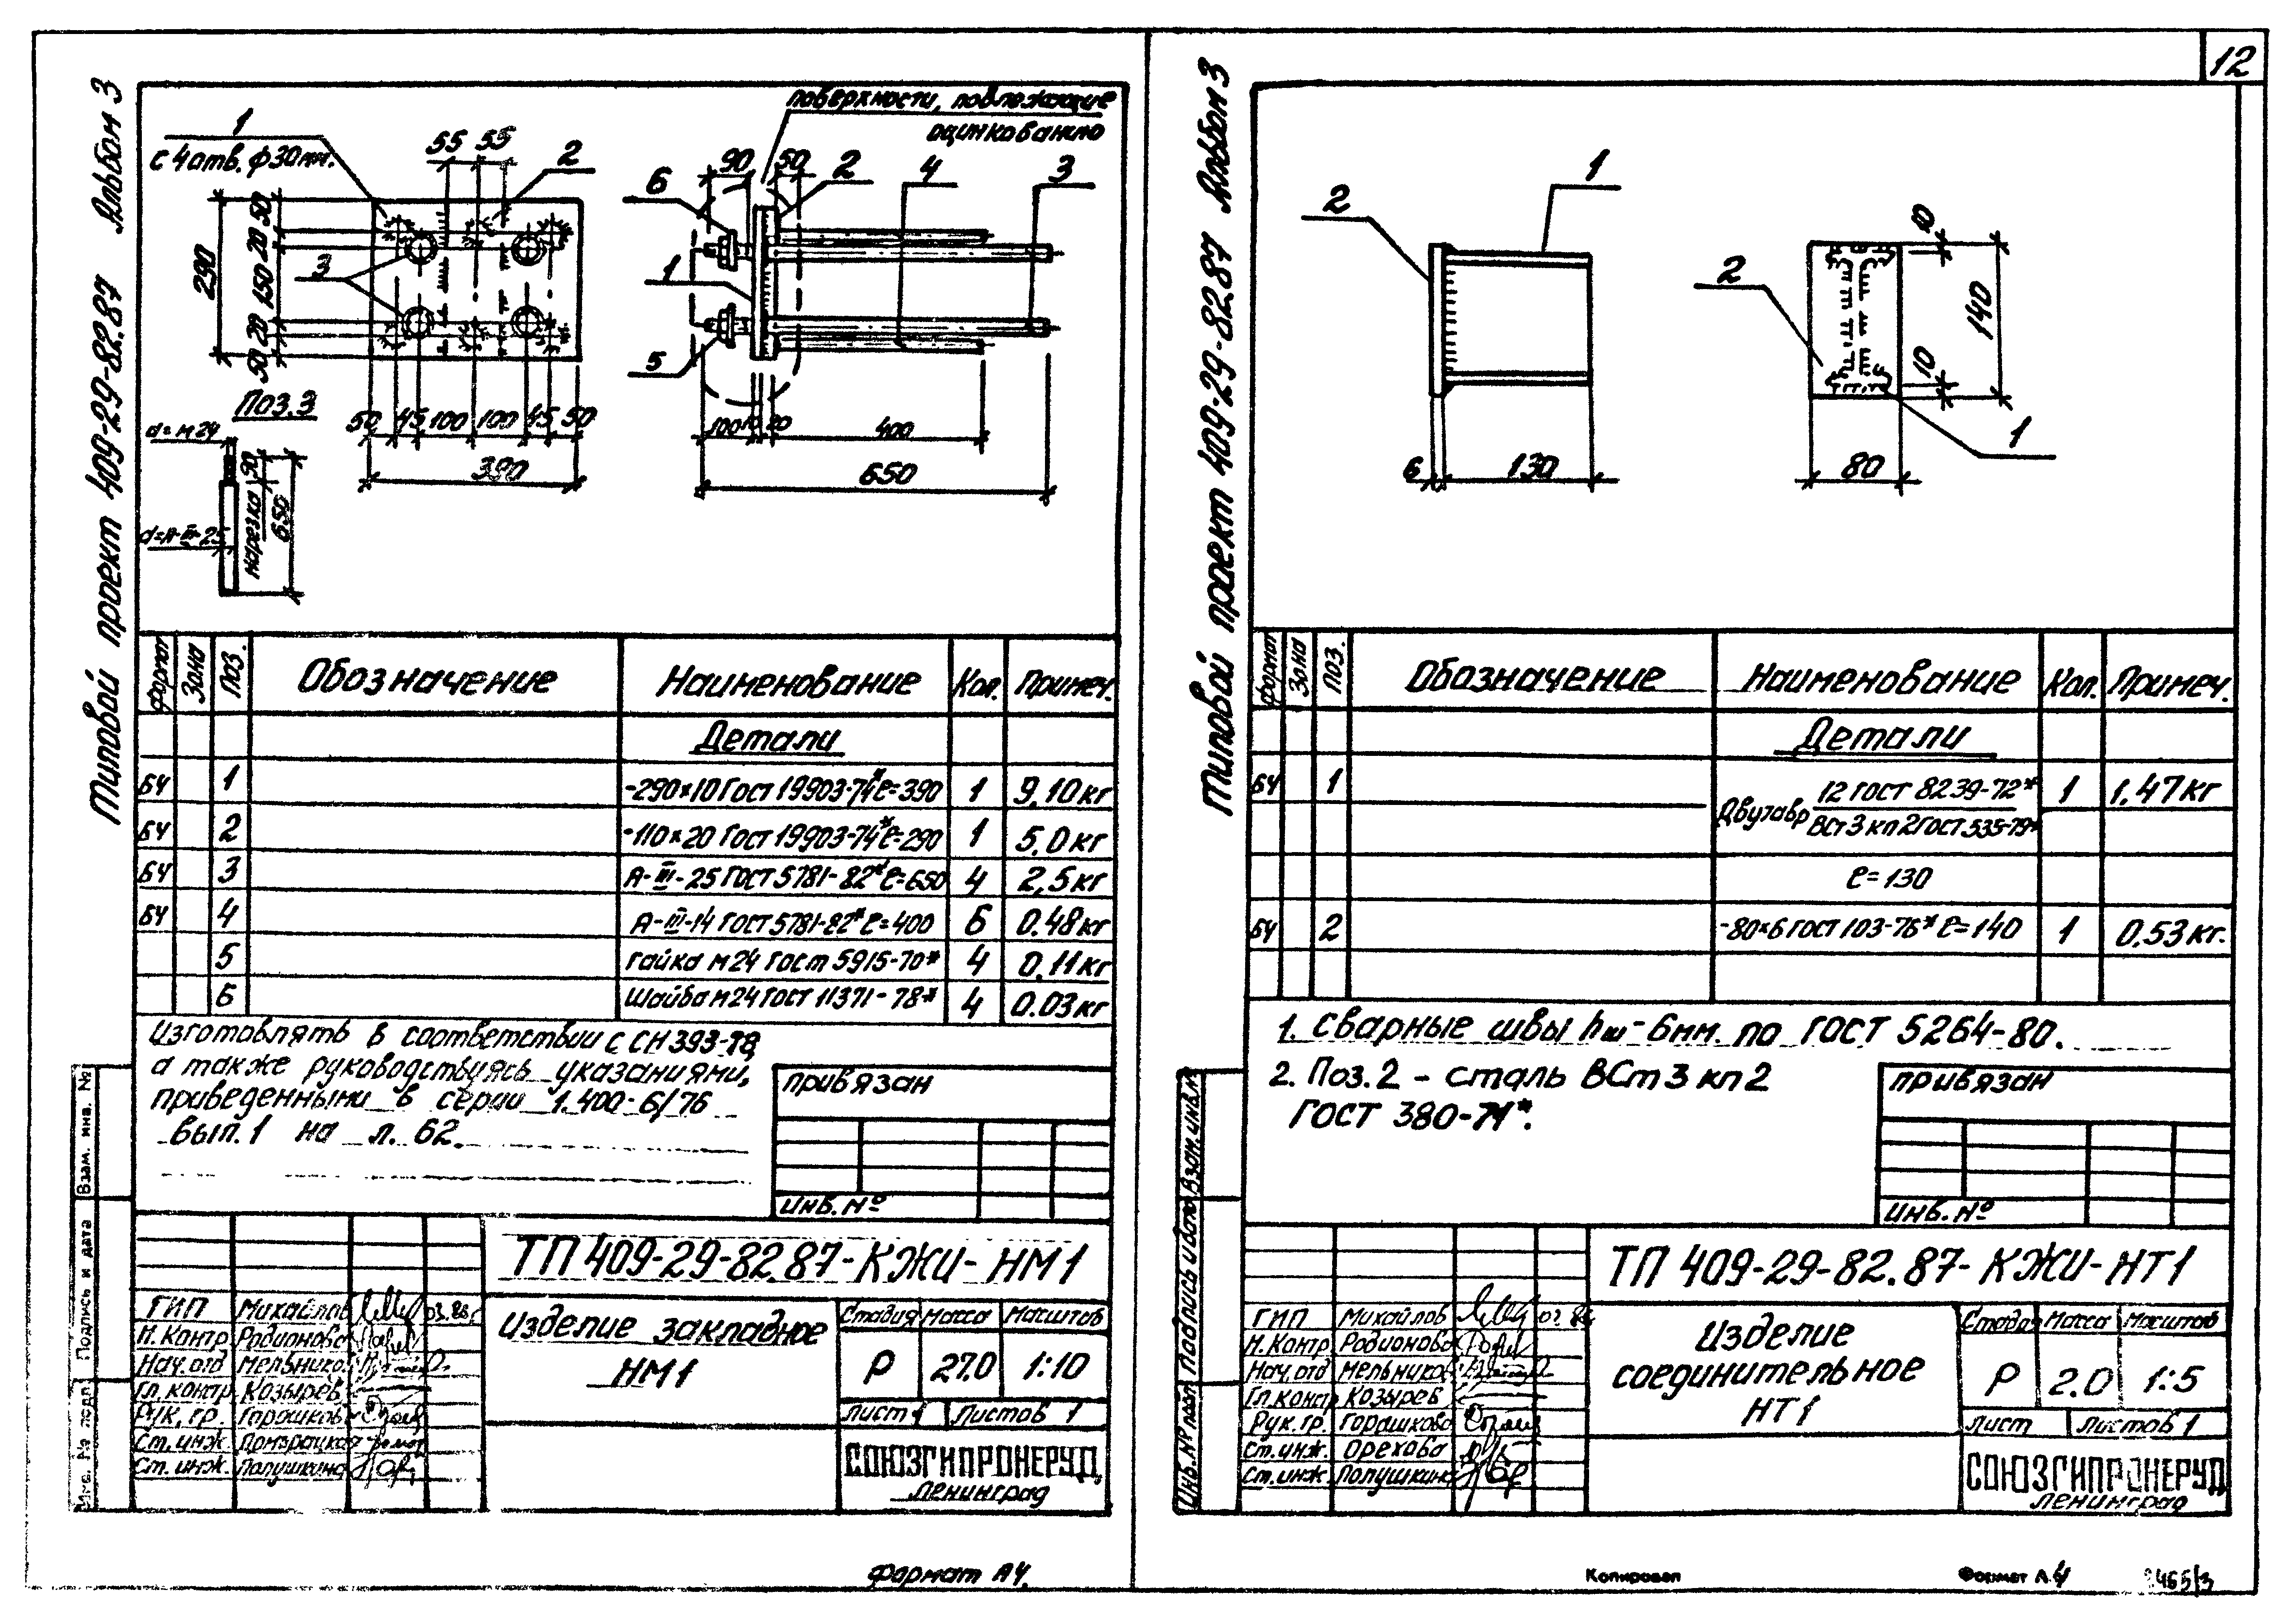 12
Типовой проект 409-29-82.87 Альбом 3
поверхности, подлежащие
оцинкованию
1
с 4 отв. ф30мм.
55 55
2
290
50
20
150
20
50
3
50 45 100 100 45 50
390
Поз. 3
d=м24
d=А-III-25
нарезка 90
650
90 50
6
2
4
3
1
5
100 10 20 400
650
Формат Зона Поз. Обозначение Наименование Кол. Примеч.
Детали
БЧ 1 -290×10 Гост 19903-74* ℓ=390 1 9,10 кг
БЧ 2 -110×20 Гост 19903-74* ℓ=290 1 5,0 кг
БЧ 3 А-III-25 ГОСТ 5781-82* ℓ=650 4 2,5 кг
БЧ 4 А-III-14 ГОСТ 5781-82* ℓ=400 6 0.48 кг
5 гайка м24 Гост 5915-70* 4 0,11 кг
6 Шайба м24 ГОСТ 11371-78* 4 0.03 кг
Изготовлять в соответствии с СН 393-78,
а также руководствуясь указаниями,
приведенными в серии 1.400-6/76
вып. 1 на л. 62.
привязан
Инв. №
ТП 409-29-82.87-КЖИ-НМ1
Изделие закладное
НМ1
Стадия Масса Масштаб
Р 27.0 1:10
Лист 1 Листов 1
СОЮЗГИПРОНЕРУД
Ленинград
ГИП Михайлов 03.88г
Н.контр Родионова
Нач.отд Мельников
Гл.контр. Козырев
Рук. гр. Горошков
Ст. инж.
Ст. инж. Полушкина
Взам. инв. №
Подпись и дата
Инв. № подл.
Формат А4.
Типовой проект 409-29-82.87 Альбом 3
2
1
6 130
2
10
140
10
1
80
Формат Зона Поз. Обозначение Наименование Кол. Примеч.
Детали
БЧ 1 Двутавр 12 ГОСТ 8239-72* 1 1.47 кг
ВСт3кп2 ГОСТ 535-79*
ℓ=130
БЧ 2 -80×6 ГОСТ 103-76* ℓ=140 1 0.53 кг.
1. Сварные швы hш-6мм. по ГОСТ 5264-80.
2. Поз. 2 - сталь ВСт3кп2
ГОСТ 380-71*.
привязан
Инв. №
ТП 409-29-82.87-КЖИ-НТ1
Изделие
соединительное
НТ1
Стадия Масса Масштаб
Р 2.0 1:5
Лист Листов 1
СОЮЗГИПРОНЕРУД
Ленинград
ГИП Михайлов
Н.контр Родионова
Нач.отд Мельников
Гл.контр Козырев
Рук.гр. Горошков
Ст.инж. Орехова
Ст.инж. Полушкина
Взам. инв. №
Подпись и дата
Инв. № подл.
Копировал
Формат А4